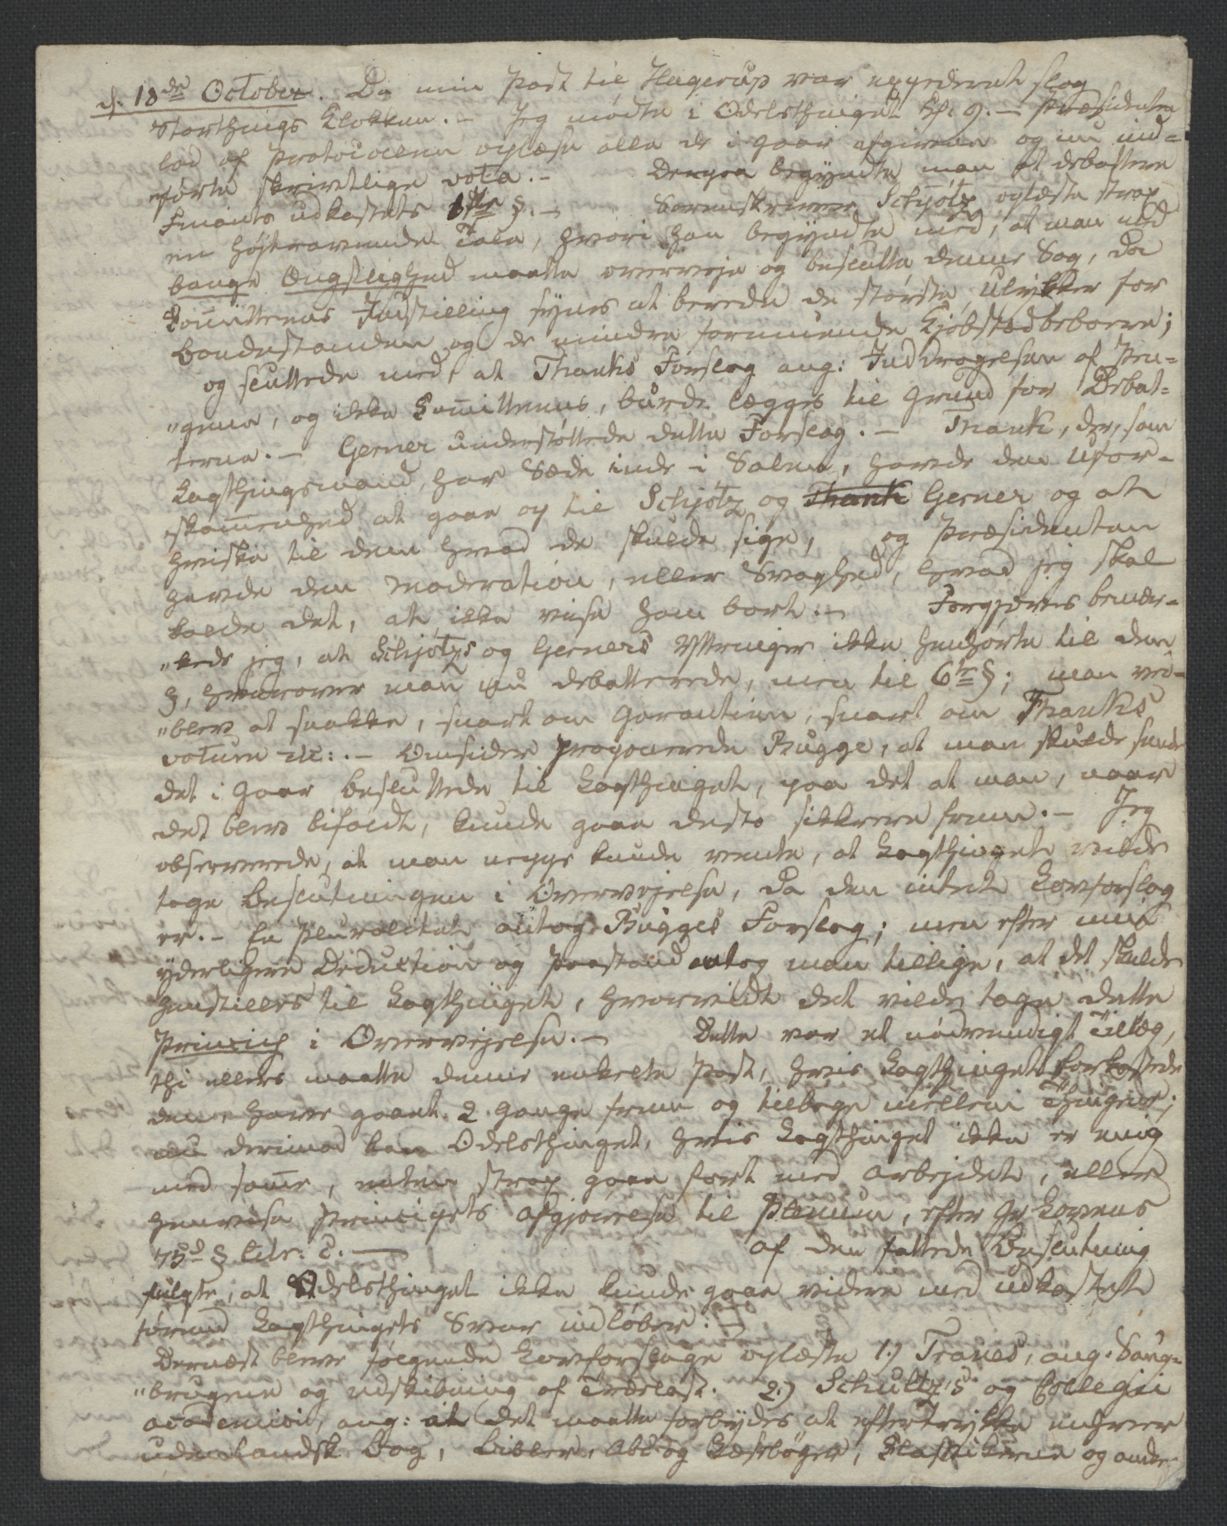 d. 18de October. Da min Post til Hagerup var expederet slog
Storthings Klokken. – Jeg mødte i Odelsthinget Kl. 9. – Præsidenten
lod af Protocollen oplæse alle de i gaar afgivne og nu ind-
førte skrivtlige vota. – Derpaa begyndte man at debattere
Finants udkastets 1ste §. – Sorenskriver Schjøtz oplæste strax
en højtravende Tale, hvori han begyndte med, at man med
bange Ængstlighed maatte overveje og beslutte denne Sag, da
Comitteens Indstilling synes at berede de største Ulykker for
Bondestanden og de mindre formuende Kjøbstedbeboere;
og sluttede med, at Thanks Forslag ang: Inddragelsen af Pen-
"gene, og ikke Comitteens, burde lægges til Grund for Debat-
terne. – Gerner understøttede dette Forslag. – Thank, der, som
Lagthingsmand, har Sæde inde i Salen, havde den Ufor-
skammenhed at gaae op til Schjøtz og Thank Gerner og at
hviske til dem hvad de skulde sige, og Præsidenten
havde den Moderation, eller Svaghed, hvad jeg skal
kalde det, at ikke vise ham bort. – Forgjæves bemær-
"kede jeg, at Schjøtzs og Gerners Yttringer ikke henhørte til den
§, hvorover man nu debatterede, men til 6te §; man ved-
"blev at snakke, snart om Garantien, snart om Thanks
votum etc: . – Omsider proponerede Bugge, at man skulde sende
det i Gaar besluttede til Lagthinget, paa det at man, naar
det blev bifaldt, kunde gaae desto sikkrere frem. – Jeg
observerede, at man neppe kunde vente, at Lagthinget vilde
tage Beslutningen i Overvejelse, da den intet Lovforslag
er. – En Pluralitet antog Bugges Forslag; men efter min
yderligere Deduction og Paastand antog man tillige, at det skulde
henstilles til Lagthinget, hvorvidt det vilde tage dette
Princip i Overvejelse. – Dette var et nødvendigt Tillæg,
thi ellers maatte denne enkelte Post, hvis Lagthinget forkastede
den, have gaaet 2 Gange frem og tilbage mellem Thingene;
nu derimod kan Odelsthinget, hvis Lagthinget ikke er enig
med samme, enten strax gaae fort med Arbejdet, eller
henvise Princippets Afgjørelse til Plenum, efter Gr. Lovens
75d § Litr. d. — Af den fattede Beslutning
fulgte, at Odelsthinget ikke kunde gaae videre med Udkastet
førend Lagthingets Svar indløber. —
Dernæst blev følgende Lovforslage oplæste 1.) Traneds, ang. Saug-
"brugene og udskibning af Trælast. 2.) Schultz's og Collegii
academici, ang: at det maatte forbydes at eftertrykke enhver
udenlandsk Bog, Bibler, Abc og Læsebøger, Classikerne og andre